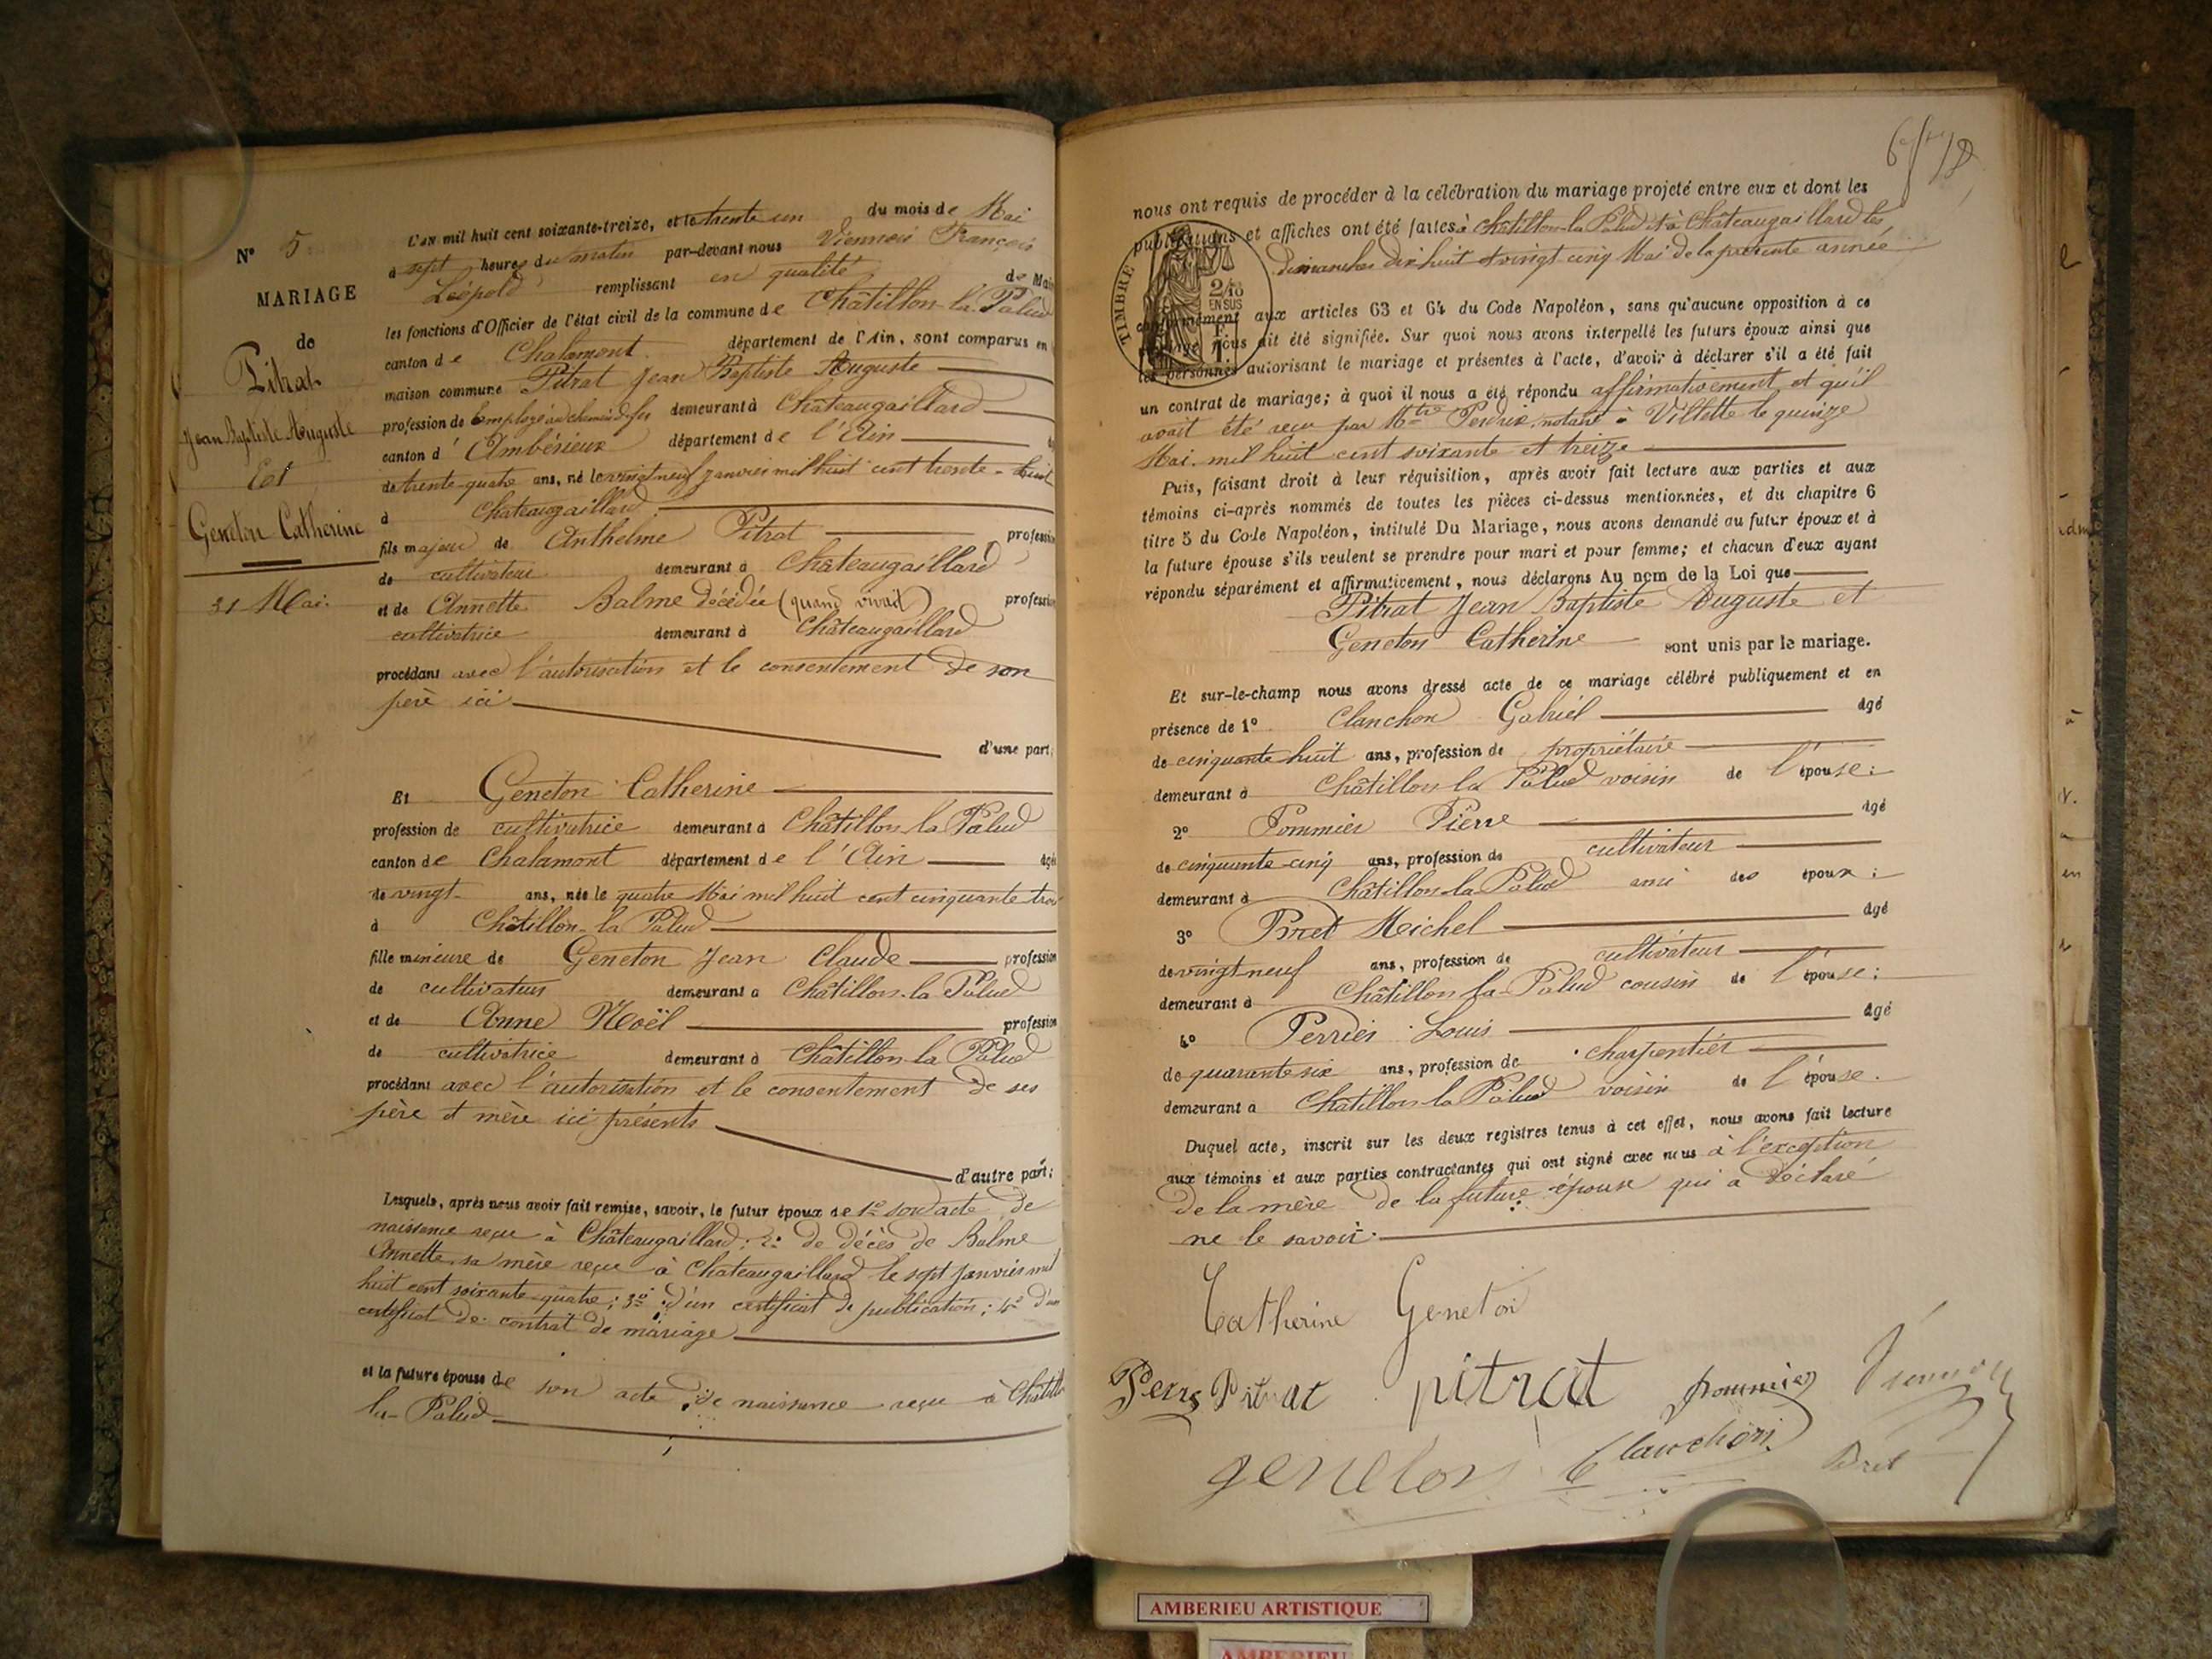 N° 5
MARIAGE
de
Pitrat
Jean Baptiste Auguste
Et
Geneton Catherine
31 Mai.
L'an mil huit cent soixante-treize, et le trente un du mois de Mai
à sept heures du matin par-devant nous Viennois François
Léopold remplissant en qualité de Mai
les fonctions d'Officier de l'état civil de la commune de Châtillon-la-Palud
canton de Chalamont département de l'Ain, sont comparus en
maison commune Pitrat Jean Baptiste Auguste
profession de Employé au chemin de fer demeurant à Châteaugaillard
canton d' Ambérieux département de l'Ain
de trente quatre ans, né le vingt neuf Janvier mil huit cent trente-huit
à Châteaugaillard
fils majeur de Anthelme Pitrat profession
de cultivateur demeurant à Châteaugaillard
et de Annette Balme décédée (quand vivait) profession
cultivatrice demeurant à Châteaugaillard
procédant avec l'autorisation et le consentement de son
père ici
d'une part;
Et Geneton Catherine
profession de cultivatrice demeurant à Châtillon-la Palud
canton de Chalamont département de l'Ain âgée
de vingt ans, née le quatre Mai mil huit cent cinquante trois
à Châtillon-la Palud
fille mineure de Geneton Jean Claude profession
de cultivateur demeurant à Châtillon-la Palud
et de Anne Noël profession
de cultivatrice demeurant à Châtillon-la Palud
procédant avec l'autorisation et le consentement de ses
père et mère ici présents
d'autre part;
Lesquels, après nous avoir fait remise, savoir, le futur époux de 1° son acte de
naissance reçu à Châteaugaillard; 2° de décès de Balme
Annette, sa mère reçu à Châteaugaillard le sept Janvier mil
huit cent soixante-quatre; 3° d'un certificat de publication; 4° d'un
certificat de contrat de mariage
et la future épouse de son acte de naissance reçu à Châtillon
la-Palud
nous ont requis de procéder à la célébration du mariage projeté entre eux et dont les
publications et affiches ont été faites à Châtillon-la Palud et à Châteaugaillard les
dimanches dix huit et vingt cinq Mai de la présente année
TIMBRE
2/10
EN SUS
F.
1
conformément aux articles 63 et 64 du Code Napoléon, sans qu'aucune opposition à ce
mariage nous ait été signifiée. Sur quoi nous avons interpellé les futurs époux ainsi que
les personnes autorisant le mariage et présentes à l'acte, d'avoir à déclarer s'il a été fait
un contrat de mariage; à quoi il nous a été répondu affirmativement et qu'il
avait été reçu par Mtre Perdrix, notaire à Villette le quinze
Mai mil huit cent soixante et treize
Puis, faisant droit à leur réquisition, après avoir fait lecture aux parties et aux
témoins ci-après nommés de toutes les pièces ci-dessus mentionnées, et du chapitre 6
titre 5 du Code Napoléon, intitulé Du Mariage, nous avons demandé au futur époux et à
la future épouse s'ils veulent se prendre pour mari et pour femme; et chacun d'eux ayant
répondu séparément et affirmativement, nous déclarons Au nom de la Loi que
Pitrat Jean Baptiste Auguste et
Geneton Catherine sont unis par le mariage.
Et sur-le-champ nous avons dressé acte de ce mariage célébré publiquement et en
présence de 1° Clanchon Gabriel âgé
de cinquante huit ans, profession de propriétaire
demeurant à Châtillon la Palud voisin de l'épouse;
2° Pommier Pierre âgé
de cinquante-cinq ans, profession de cultivateur
demeurant à Châtillon-la Palud ami des époux;
3° Bret Michel âgé
de vingt neuf ans, profession de cultivateur
demeurant à Châtillon-la-Palud cousin de l'épouse;
4° Perrier Louis âgé
de quarante six ans, profession de charpentier
demeurant à Châtillon-la Palud voisin de l'épouse.
Duquel acte, inscrit sur les deux registres tenus à cet effet, nous avons fait lecture
aux témoins et aux parties contractantes qui ont signé avec nous à l'exception
de la mère de la future épouse qui a déclaré
ne le savoir.
Catherine Geneton
Pitrat pitrat pommier
geneton Clanchon Bret
AMBERIEU ARTISTIQUE
AMBERIEU